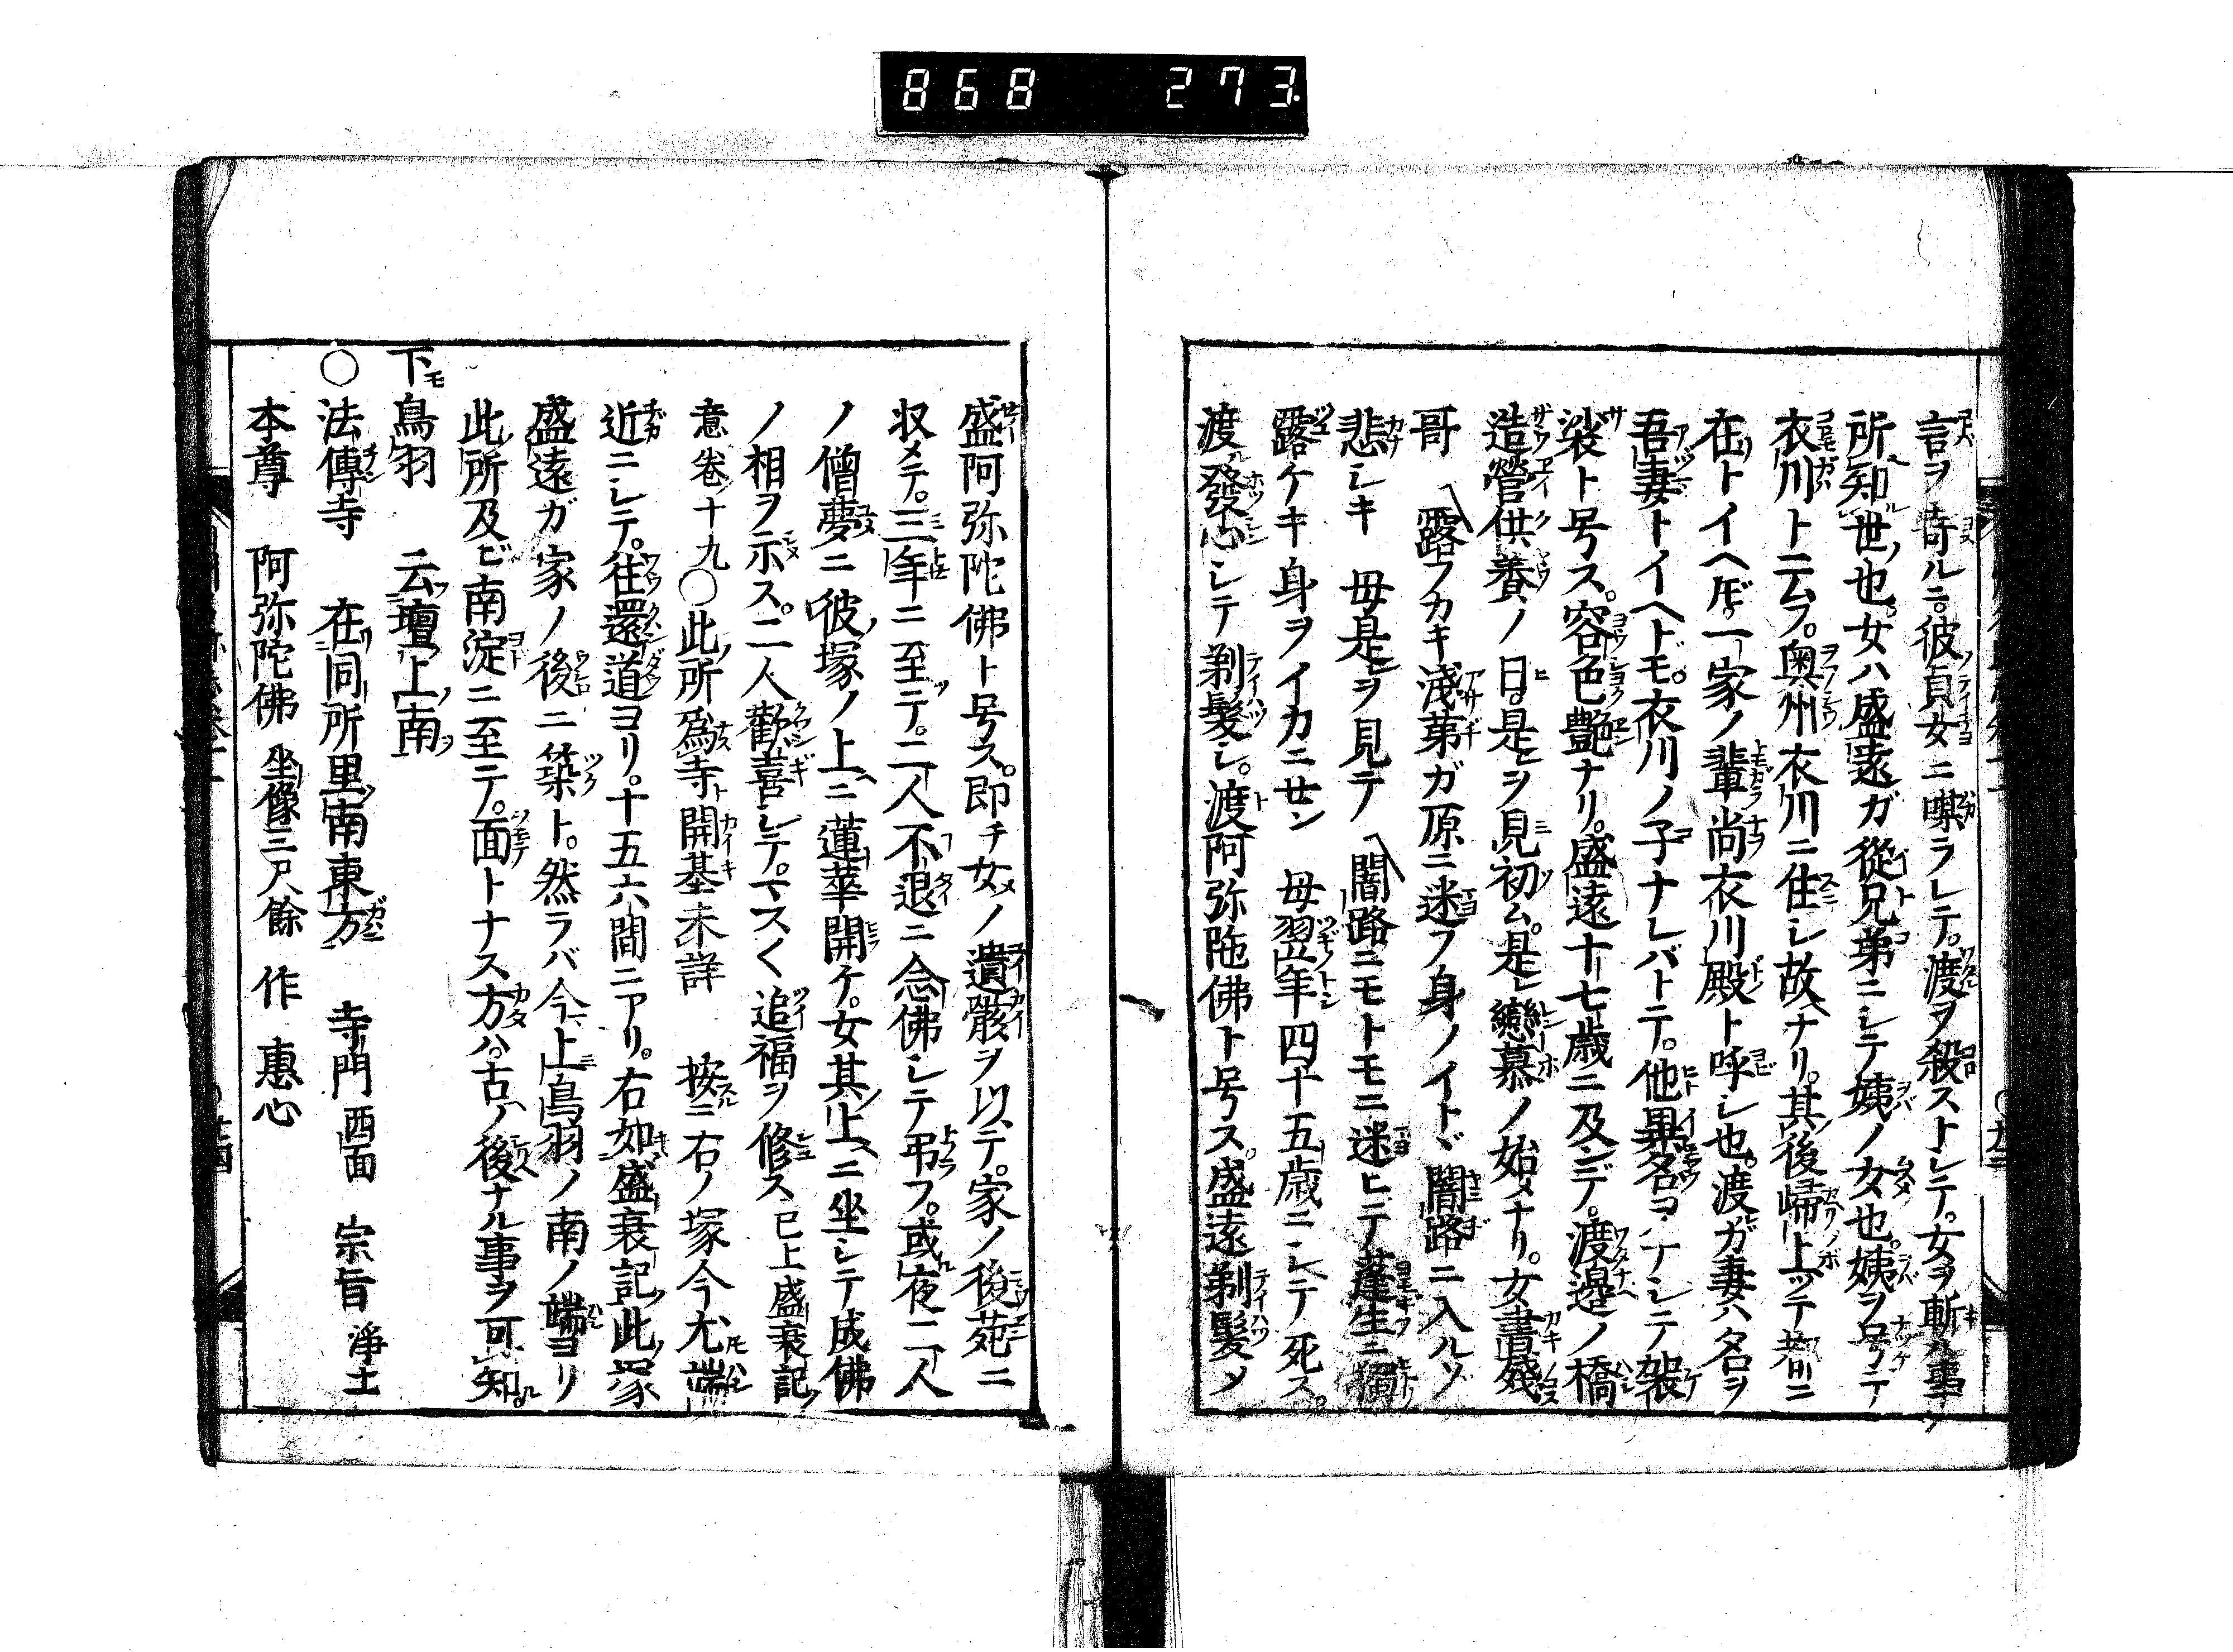 868 273
言ヲ寄ルニ。彼貞女ニ嘲ラレテ。渡ヲ殺ストレテ。女ヲ斬ル事ノ
所知世也。女ハ盛遠ガ從兄弟ニシテ姨ノ女也。姨ヲ号テ
衣川ト云フ。奥州衣川ニ住シ故ナリ。其後帰上ッテ都ニ
在トイヘ𪜈。一家ノ輩尚衣川殿ト呼シ也。渡ガ妻ハ名ヲ
吾妻トイヘドモ。衣川ノ子ナレバトテ。他異名ヨナシテ袈
裟ト号ス。容色艶ナリ。盛遠十七歳ニ及ンデ。渡邉ノ橋
造營供養ノ日。是ヲ見初ム。是レ戀慕ノ始メナリ。女書残
哥 露フカキ淺茅ガ原ニ迷フ身ノイトヾ闇路ニ入ルソ
悲シキ 母是ヲ見テ 闇路ニモトモニ迷ヒテ蓬生ニ獨
露ケキ身ヲイカニセン 母翌年四十五歳ニシテ死ス。
渡發心シテ剃髪シ。渡阿弥陁佛ト号ス。盛遠剃髪メ
盛阿弥陀佛ト号ス。即チ女ノ遺骸ヲ以テ。家ノ後苑ニ
収メテ。三年ニ至テ。二人不退ニ念佛シテ弔フ。或夜二人
ノ僧夢ニ彼塚ノ上ニ蓮華開ケ。女其上ニ坐シテ成佛
ノ相ヲ示ス。二人歡喜シテ。マスく追福ヲ修ス 已上盛衰記ノ
意 巻十九〇此所為寺ト開基未詳 按スルニ右ノ塚今尤端
近ニシテ。往還道ヨリ。十五六間ニアリ。右如盛衰記此塚
盛遠ガ家ノ後ニ築ト。然ラバ今上鳥羽ノ南ノ端ヨリ
此所及ビ南淀ニ至ニテ。面トナス方ハ。古ノ後ナル事ヲ可知
下鳥羽 云壇上南
〇法傳寺 在同所里南東方 寺門 西面 宗旨 淨土
本尊 阿弥陀佛 坐像三尺餘 作 惠心